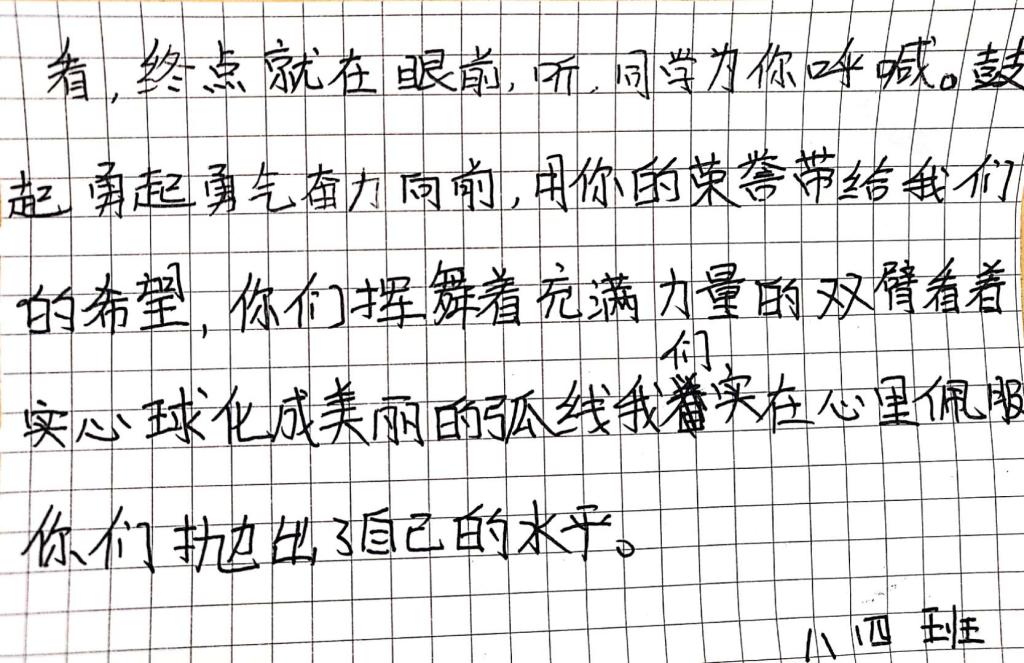 看,终点就在眼前,听,同学为你呼喊。鼓
起勇起勇气奋力向前,用你的荣誉带给我们
的希望,你们挥舞着充满力量的双臂看着
实心球化成美丽的弧线我们实在心里佩服
你们抛出了自己的水平。
八四班